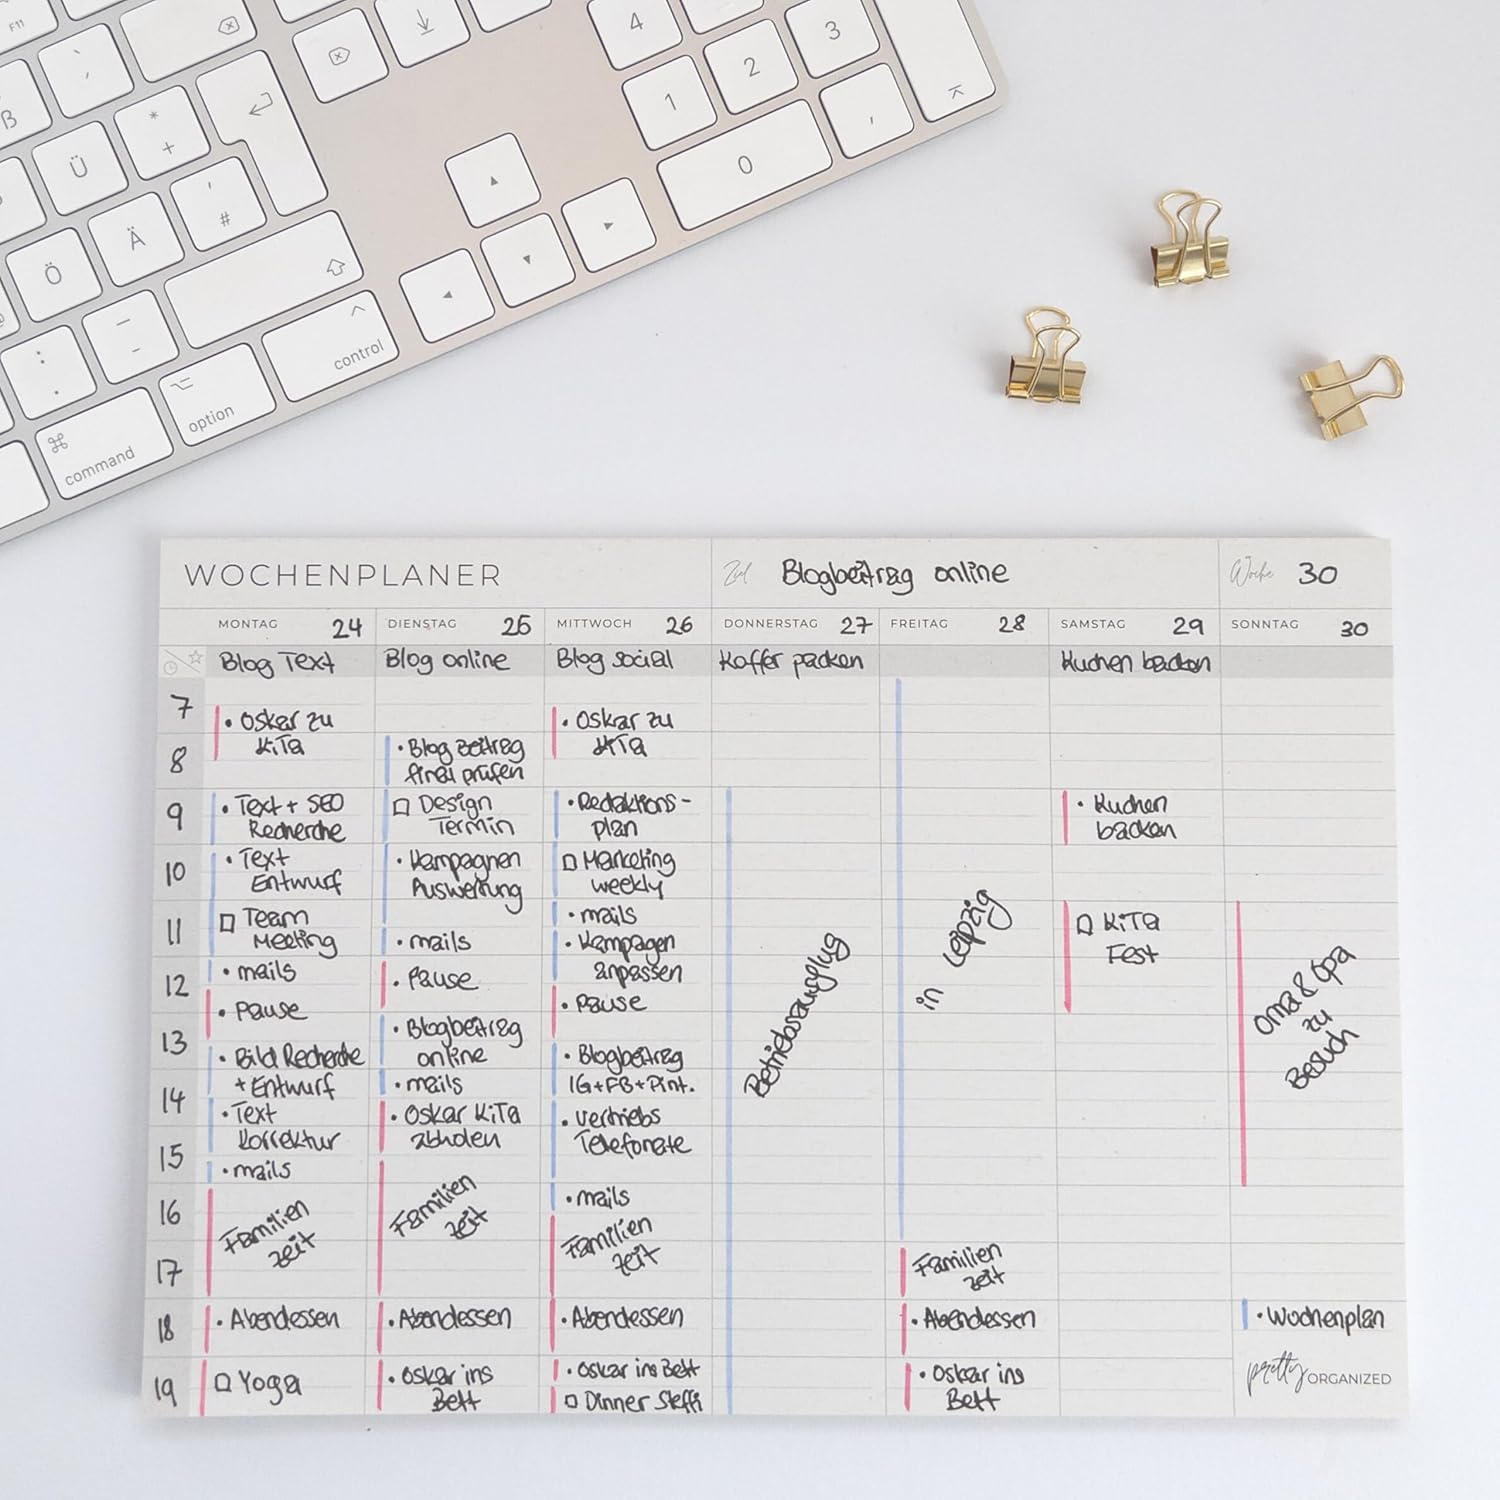 F11
4
3
2
1
0
,
ß
´
`
Ü
*
+
Ö
Ä
'
#
:
.
_
-
^
control
option
⌘
command
WOCHENPLANER
Ziel
Blogbeitrag online
Woche
30
MONTAG 24
DIENSTAG 25
MITTWOCH 26
DONNERSTAG 27
FREITAG 28
SAMSTAG 29
SONNTAG 30
Blog Text
Blog online
Blog social
Koffer packen
Kuchen backen
7
8
9
10
11
12
13
14
15
16
17
18
19
• Oskar zu
KiTa
• Text + SEO
Recherche
• Text
Entwurf
☐ Team
Meeting
• mails
• Pause
• Bild Recherche
+ Entwurf
• Text
Korrektur
• mails
Familien
zeit
• Abendessen
☐ Yoga
• Blog Beitrag
final prüfen
☐ Design
Termin
• Kampagnen
Auswertung
• mails
• Pause
• Blogbeitrag
online
• mails
• Oskar KiTa
abholen
Familien
zeit
• Abendessen
• Oskar ins
Bett
• Oskar zu
KiTa
• Redaktions-
plan
☐ Marketing
weekly
• mails
• Kampagen
anpassen
• Pause
• Blogbeitrag
IG+FB+Pint.
• Vertriebs
Telefonate
• mails
Familien
zeit
• Abendessen
• Oskar ins Bett
☐ Dinner Steffi
Betriebsausflug
in Leipzig
Familien
zeit
• Abendessen
• Oskar ins
Bett
• Kuchen
backen
☐ KiTa
Fest
Oma & Opa
zu
Besuch
• Wochenplan
pretty ORGANIZED